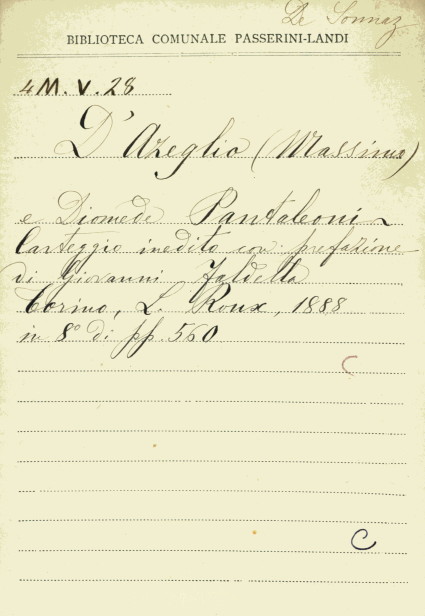 De Sonnaz
BIBLIOTECA COMUNALE PASSERINI-LANDI
4M.V.28
D'Azeglio (Massimo)
e Diomede Pantaleoni ~
Carteggio inedito con prefazione
di Giovanni Faldella
Torino, L. Roux, 1888
in 8° di pp. 560
C
C